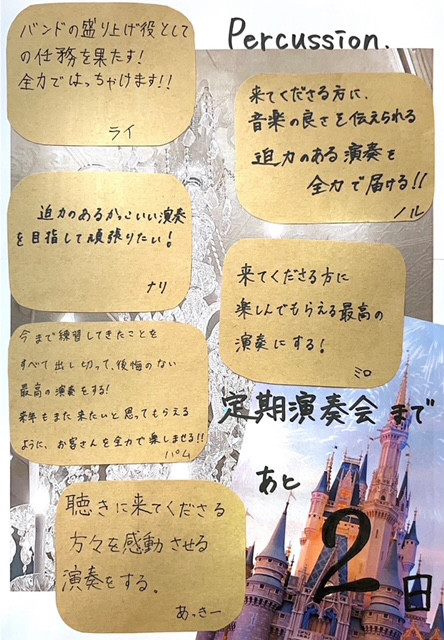 Percussion.
バンドの盛り上げ役として
の任務を果たす!
全力ではっちゃけます!!
ライ
来てくださる方に、
音楽の良さを伝えられる
迫力のある演奏を
全力で届ける!!
ノル
迫力のあるかっこいい演奏
を目指して頑張りたい!
ナリ
来てくださる方に
楽しんでもらえる最高の
演奏にする!
ミロ
今まで練習してきたことを
すべて出し切って、後悔のない
最高の演奏をする!
来年もまた来たいと思ってもらえる
ように、お客さんを全力で楽しませる!!
パム
聴きに来てくださる
方々を感動させる
演奏をする。
あっきー
定期演奏会まで
あと
2日